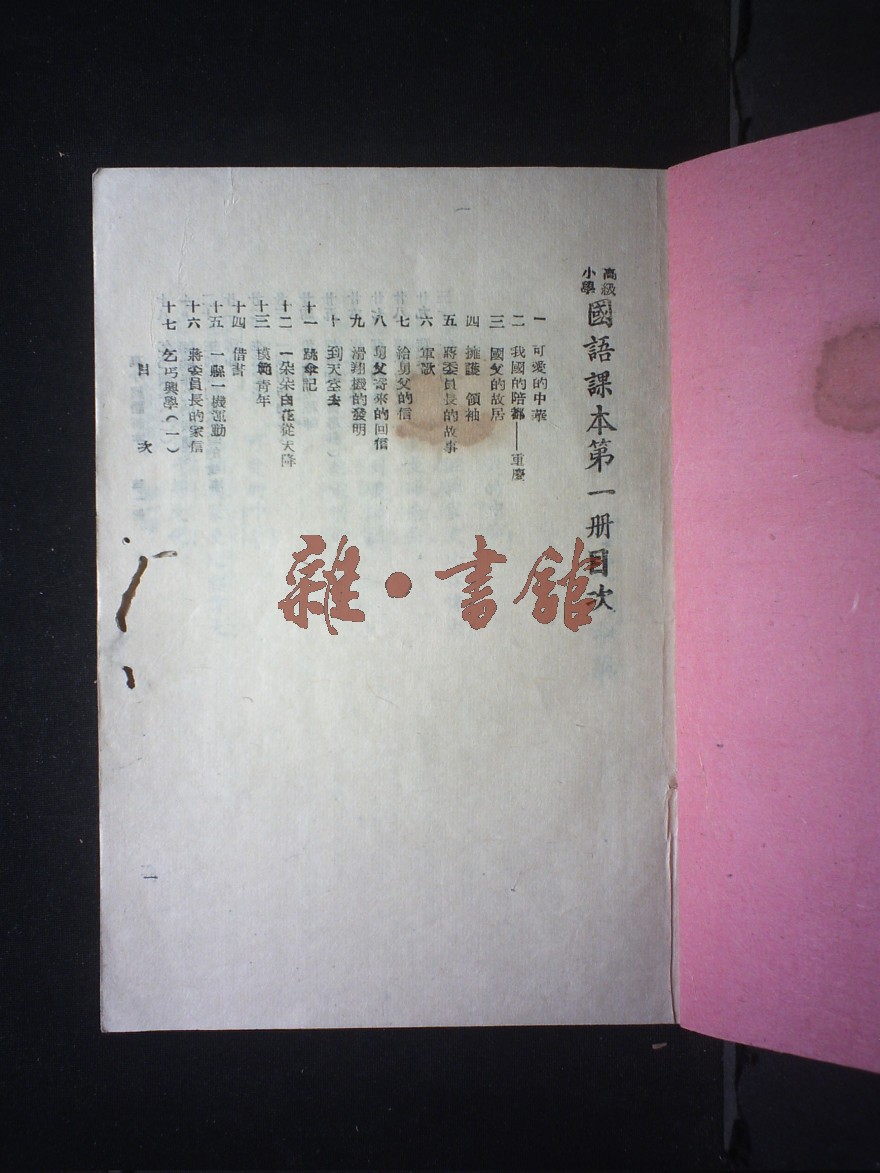 高級小學 國語課本第一册目次
一 可愛的中華
二 我國的陪都——重慶
三 國父的故居
四 擁護 領袖
五 蔣委員長的故事
六 軍歌
七 給舅父的信
八 舅父寄來的回信
九 滑翔機的發明
十 到天空去
十一 跳傘記
十二 一朵朵白花從天降
十三 模範青年
十四 借書
十五 一縣一機運動
十六 蔣委員長的家信
十七 乞丐興學(一)
目 次
一
雜·書館